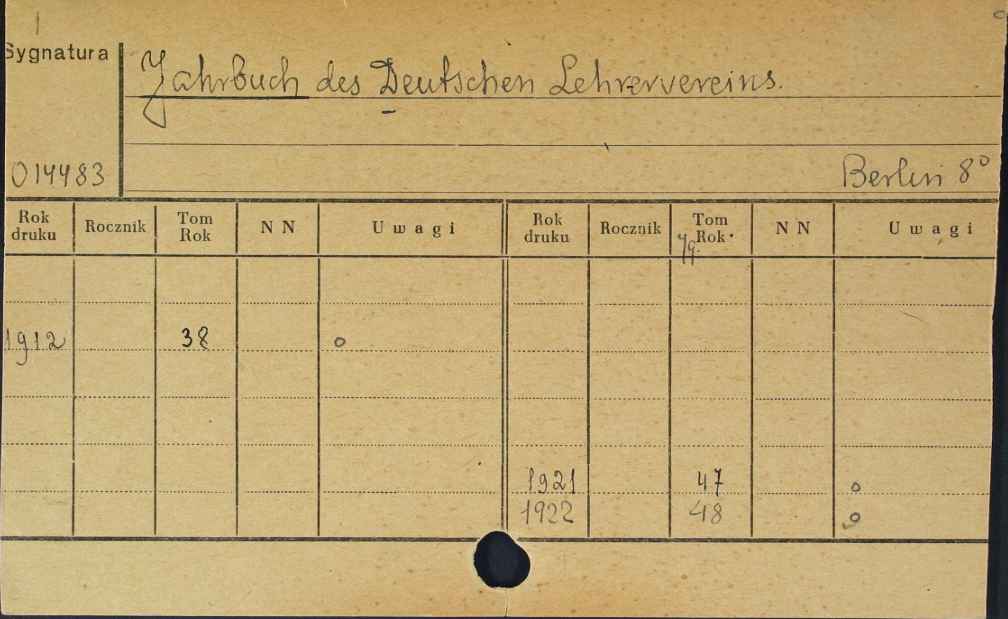 Sygnatura
Jahrbuch des Deutschen Lehrervereins.
014483
Berlin 8°
Rok druku Rocznik Tom Rok NN Uwagi Rok druku Rocznik Tom Rok Jg. NN Uwagi
1912 38 o
1921 47 o
1922 48 o